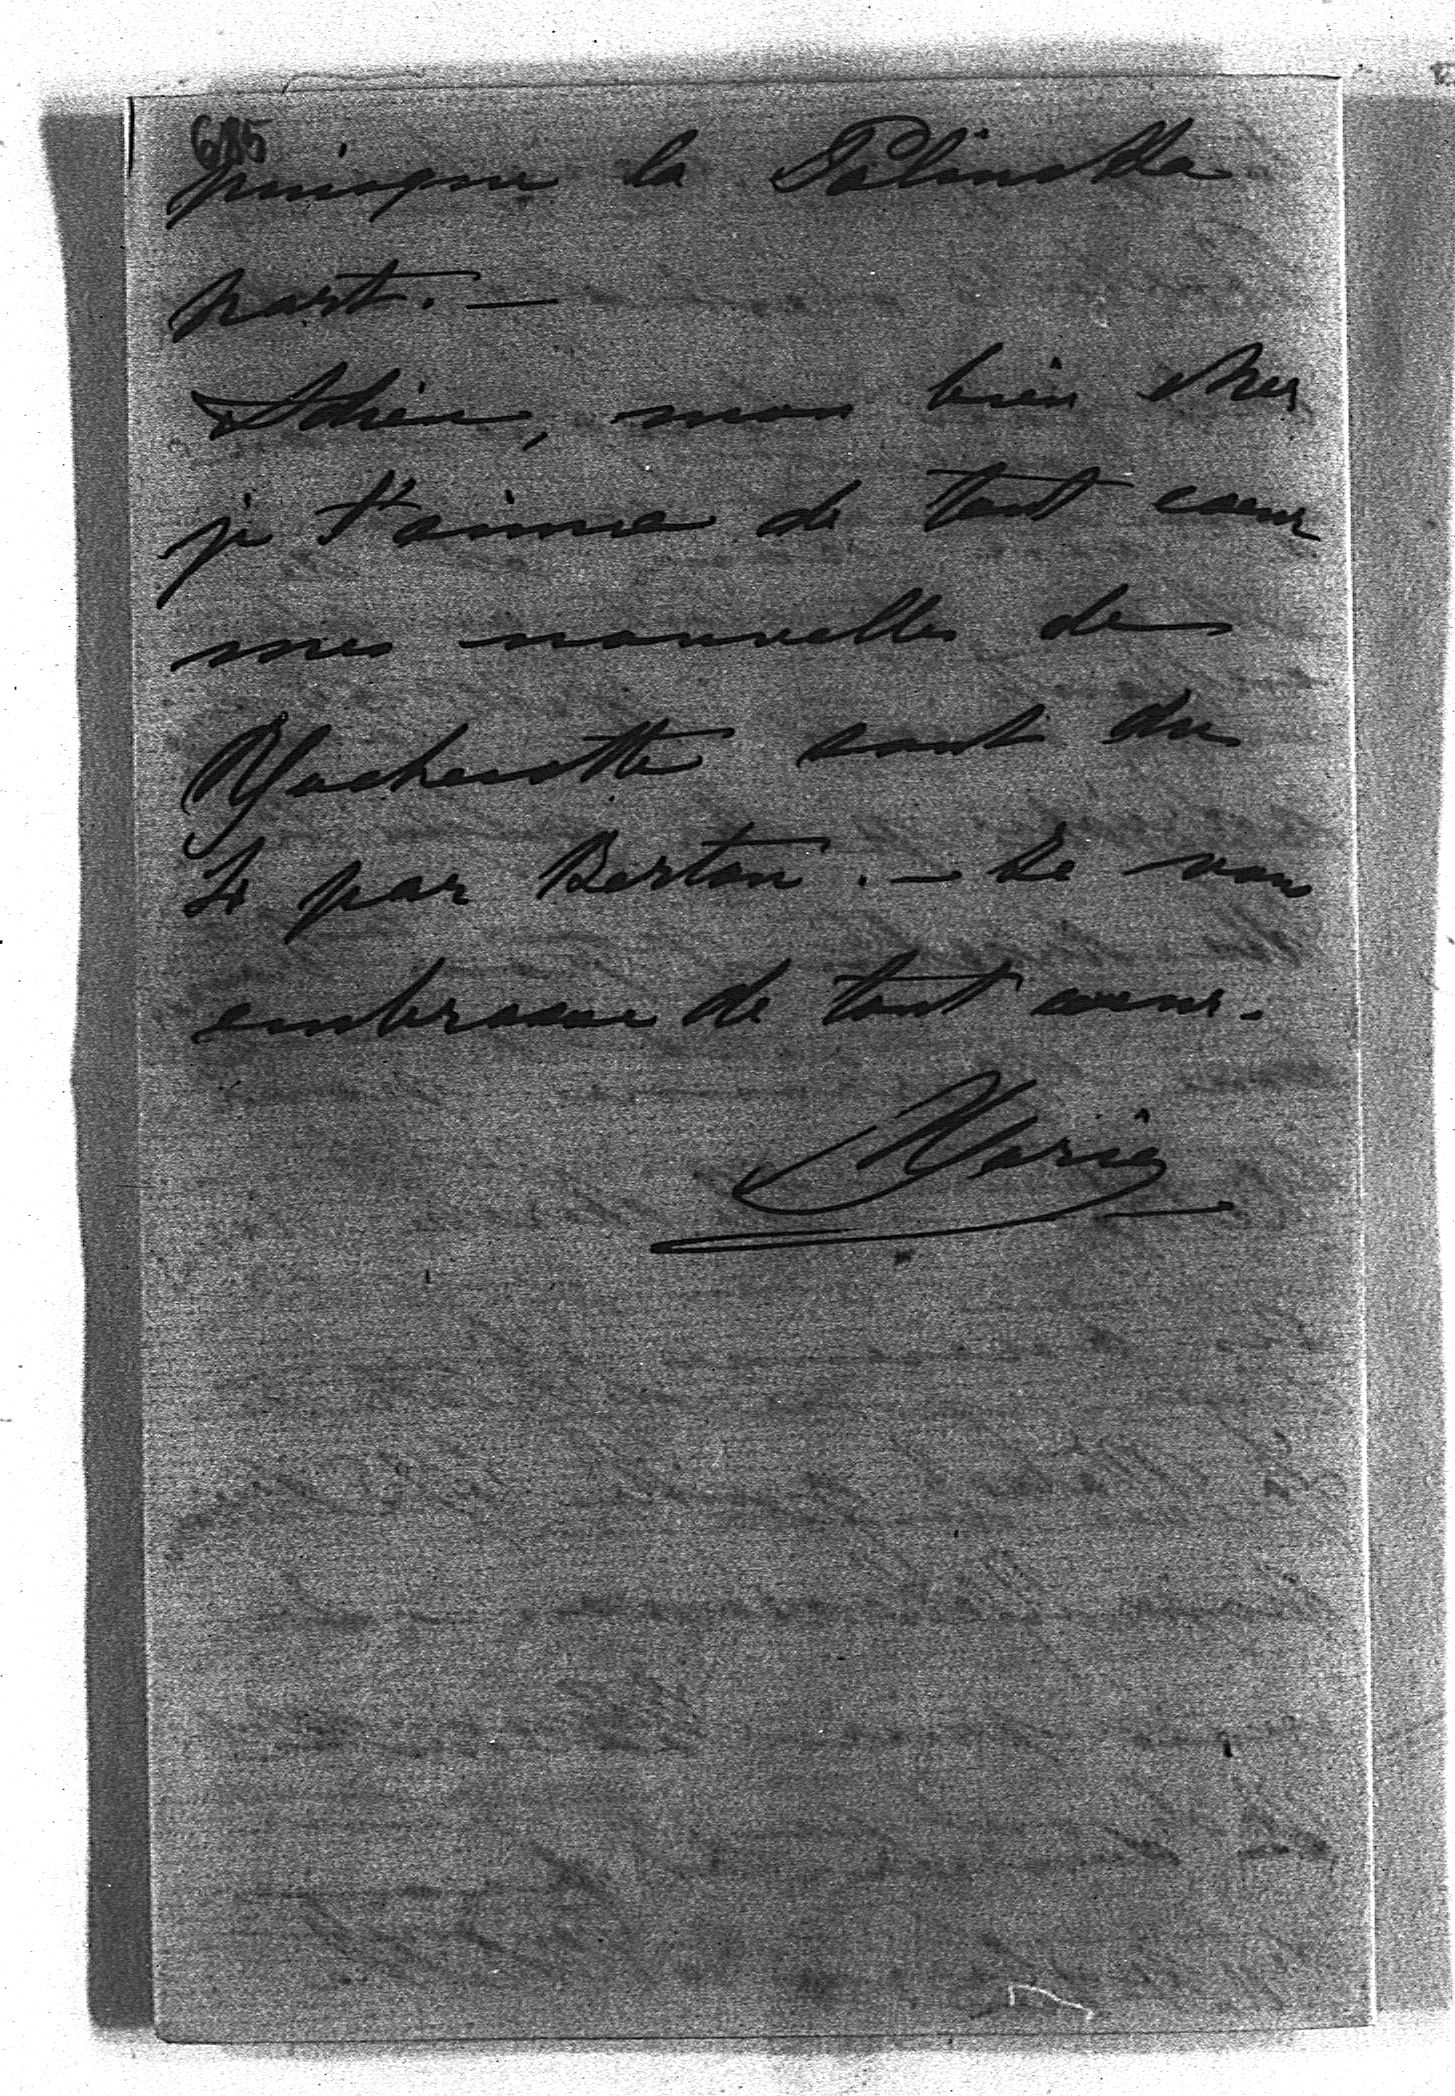 685
puisque la Palinska
part. —
Adieu, mon bien cher
je t'aime de tout coeur
mes nouvelles de
sont du
4 par Bertan. — Je vous
embrasse de tout coeur.
Marie